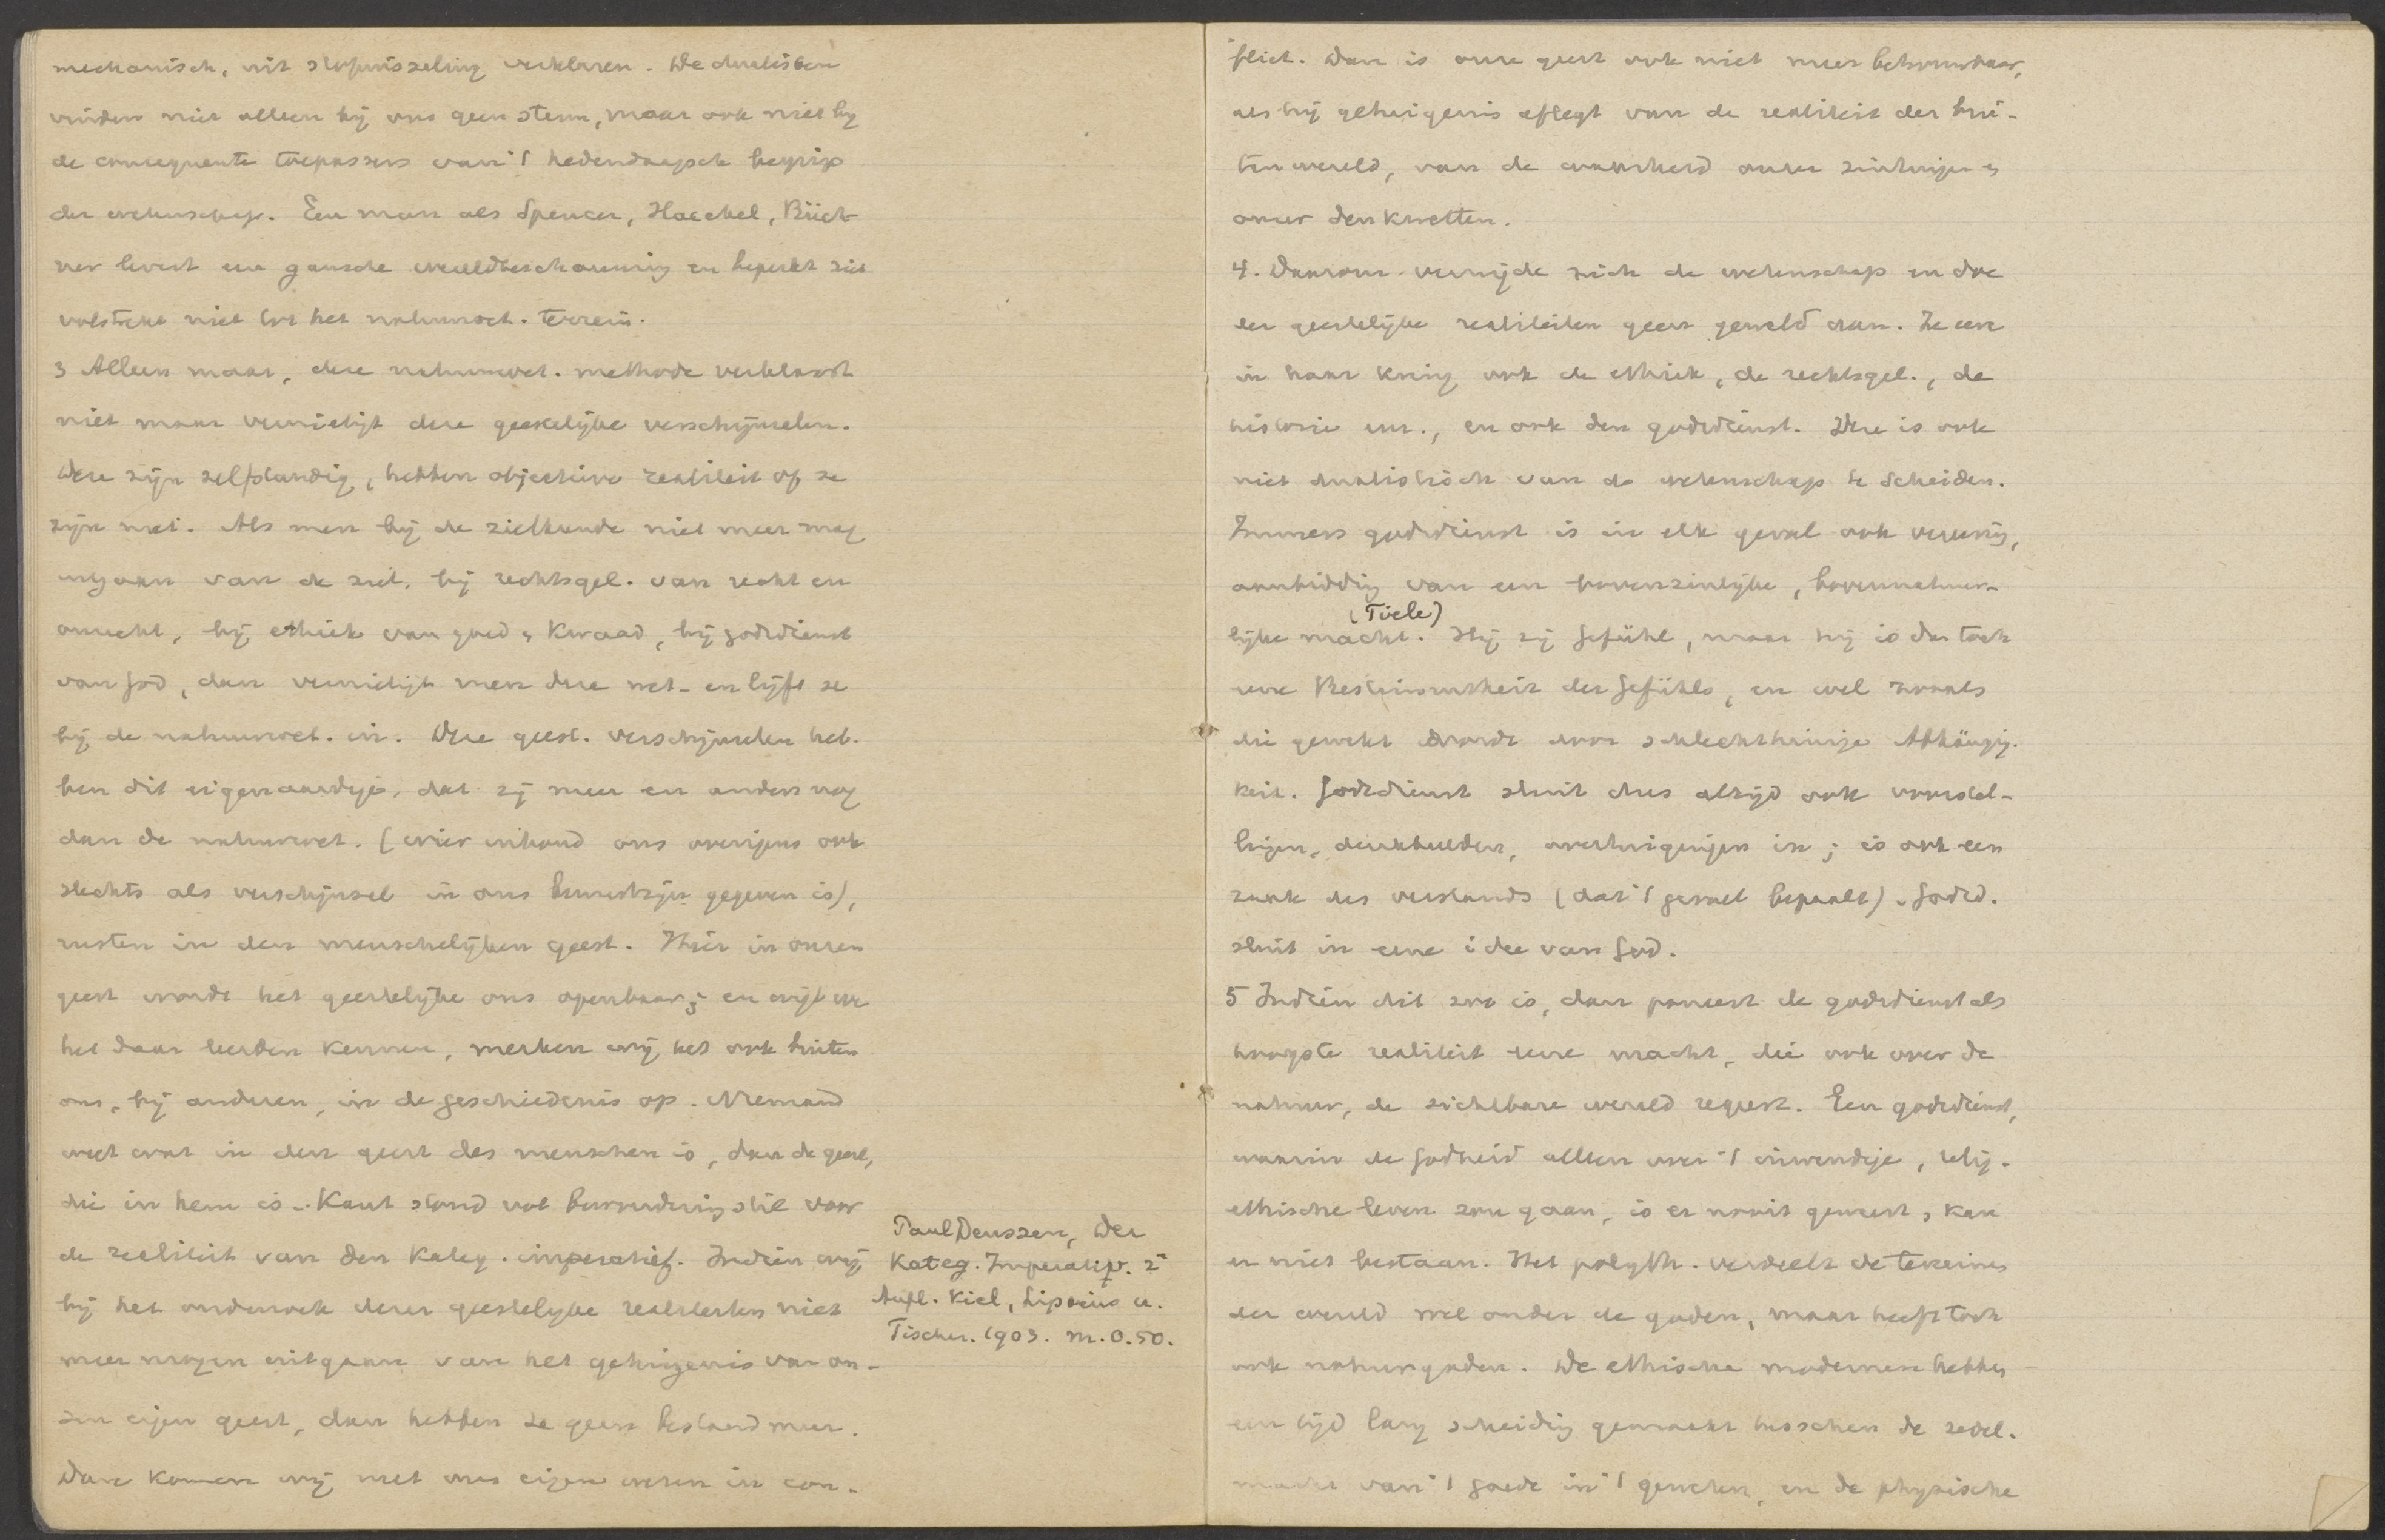 mechanisch, uit stofwisseling verklaren. De dualisten
vinden niet alleen bij ons geen stem, maar ook niet bij
de consequente toepassers van 't hedendaagsch begrip
der wetenschap. Een man als Spencer, Haeckel, Büch-
ner levert eene gansche wereldbeschouwing en beperkt zich
volstrekt niet tot het natuurwet. terrein.
3 Alleen maar, deze natuurwet. methode verklaart
niet maar vernietigt deze geestelijke verschijnselen.
Deze zijn zelfstandig, hebben objectieve realiteit of ze
zijn niet. Als men bij de zielkunde niet meer mag
uitgaan van de ziel, bij rechtsgel. van recht en
onrecht, bij ethiek van goed & kwaad, bij godsdienst
van God, dan vernietigt men deze wet. en lijft ze
bij de natuurwet. in. Deze geest. verschijnselen heb-
ben dit eigenaardigs, dat zij meer en anders nog
dan de natuurwet. (wier inhoud ons overigens ook
slechts als verschijnsel in ons bewustzijn gegeven is),
rusten in den menschelijken geest. Hier in onzen
geest wordt het geestelijke ons openbaar; en wijl we
het daar leerden kennen, merken wij het ook buiten
ons, bij anderen, in de geschiedenis op. Niemand
weet wat in den geest des menschen is, dan de geest,
die in hem is. Kant stond vol bewondering stil voor
de realiteit van den kateg. imperatief. Indien wij
bij het onderzoek dezer geestelijke realiteiten niet
meer mogen uitgaan van het getuigenis van on-
zen eigen geest, dan hebben ze geen bestand meer.
Dan komen wij met ons eigen wezen in con-
Paul Deussen, Der
Kateg. Imperativ. 2e
Aufl. Kiel, Lipsius u.
Tischer. 1903. M. 0.50.
flict. Dan is onze geest ook niet meer betrouwbaar,
als hij getuigenis aflegt van de realiteit der bui-
tenwereld, van de waarheid onzer zintuigen &
onzer denkwetten.
4. Daarom vermijde zich de wetenschap en doe
der geestelijke realiteiten geen geweld aan. Ze eere
in haar kring ook de ethiek, de rechtsgel., de
historie enz., en ook den godsdienst. Deze is ook
niet dualistisch van de wetenschap te scheiden.
Immers godsdienst is in elk geval ook vereering,
aanbidding van een bovenzinlijke, bovennatuur-
(Tiele)
lijke macht. Hij zij Gefühl, maar hij is dan toch
eene Bestimmtheit des Gefühls, en wel zooals
die gewekt wordt door schlechthinnige Abhängig-
keit. Godsdienst sluit dus altijd ook voorstel-
lingen, denkbeelden, overtuigingen in; is ook een
zaak des verstands (dat 't gevoel bepaalt). Godsd.
sluit in eene idee van God.
5 Indien dit zoo is, dan poneert de godsdienst als
hoogste realiteit eene macht, die ook over de
natuur, de zichtbare wereld regeert. Een godsdienst,
waarin de godheid alleen over 't inwendige, relig.-
ethische leven zou gaan, is er nooit geweest, & kan
er niet bestaan. Het polyth. verdeelt de terreinen
der wereld wel onder de goden, maar heeft toch
ook natuurgoden. De ethische modernen hebben
een tijd lang scheiding gemaakt tusschen de zedel.
macht van 't goede in 't geweten, en de physische